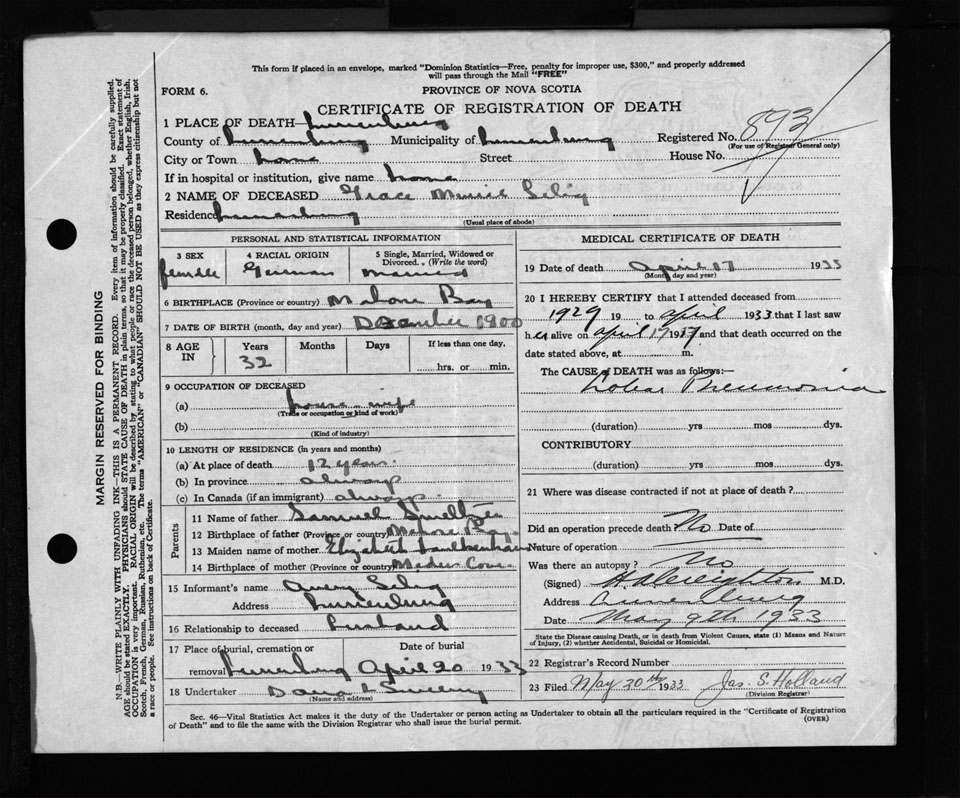 This form if placed in an envelope, marked "Dominion Statistics—Free, penalty for improper use, $300," and properly addressed
will pass through the Mail "FREE"
FORM 6.
PROVINCE OF NOVA SCOTIA
CERTIFICATE OF REGISTRATION OF DEATH
1 PLACE OF DEATH Lunenburg
County of Lunenburg Municipality of Lunenburg Registered No. 893
(For use of Registrar General only)
City or Town Home Street House No.
If in hospital or institution, give name Home
2 NAME OF DECEASED Grace Minnie Selig
Residence Lunenburg
(Usual place of abode)
PERSONAL AND STATISTICAL INFORMATION
3 SEX female
4 RACIAL ORIGIN German
5 Single, Married, Widowed or Divorced. (Write the word) Married
6 BIRTHPLACE (Province or country) Mahone Bay
7 DATE OF BIRTH (month, day and year) December 1900
8 AGE IN Years 32 Months Days If less than one day, hrs. or min.
9 OCCUPATION OF DECEASED
(a) house wife
(Trade or occupation or kind of work)
(b)
(Kind of industry)
10 LENGTH OF RESIDENCE (in years and months)
(a) At place of death 12 years
(b) In province always
(c) In Canada (if an immigrant) always
Parents
11 Name of father Samuel Smeltzer
12 Birthplace of father (Province or country) Mahone Bay
13 Maiden name of mother Elizabeth
14 Birthplace of mother (Province or country) Maders Cove
15 Informant's name Avery Selig
Address Lunenburg
16 Relationship to deceased husband
17 Place of burial, cremation or removal Lunenburg Date of burial April 20 1933
18 Undertaker Dana L Sweeny
(Name and address)
MEDICAL CERTIFICATE OF DEATH
19 Date of death April 17 1933
(Month, day and year)
20 I HEREBY CERTIFY that I attended deceased from
1929 19 to April 1933 that I last saw
h er alive on April 17 19 and that death occurred on the
date stated above, at m.
The CAUSE of DEATH was as follows:—
Lobar Pneumonia
(duration) yrs mos dys.
CONTRIBUTORY
(duration) yrs mos dys.
21 Where was disease contracted if not at place of death?
Did an operation precede death? No Date of
Nature of operation
Was there an autopsy? No
(Signed) H A Creighton M.D.
Address Lunenburg
Date May 9th 1933
State the Disease causing Death, or in death from Violent Causes, state (1) Means and Nature
of Injury, (2) whether Accidental, Suicidal or Homicidal.
22 Registrar's Record Number
23 Filed May 30th 1933 Jas. S. Holland
(Division Registrar)
Sec. 46—Vital Statistics Act makes it the duty of the Undertaker or person acting as Undertaker to obtain all the particulars required in the "Certificate of Registration
of Death" and to file the same with the Division Registrar who shall issue the burial permit. (OVER)
MARGIN RESERVED FOR BINDING
N.B.—WRITE PLAINLY WITH UNFADING INK—THIS IS A PERMANENT RECORD. Every item of information should be carefully supplied.
AGE should be stated EXACTLY. PHYSICIANS should STATE CAUSE OF DEATH in plain terms, so that it may be properly classified. Exact statement of
OCCUPATION is very important. RACIAL ORIGIN will be described by stating to what people or race the deceased person belonged, whether English, Irish,
Scotch, French, German, Russian, Ruthenian, etc. The terms "AMERICAN" or "CANADIAN" SHOULD NOT BE USED as they express citizenship but not
a race or people. See instructions on back of Certificate.